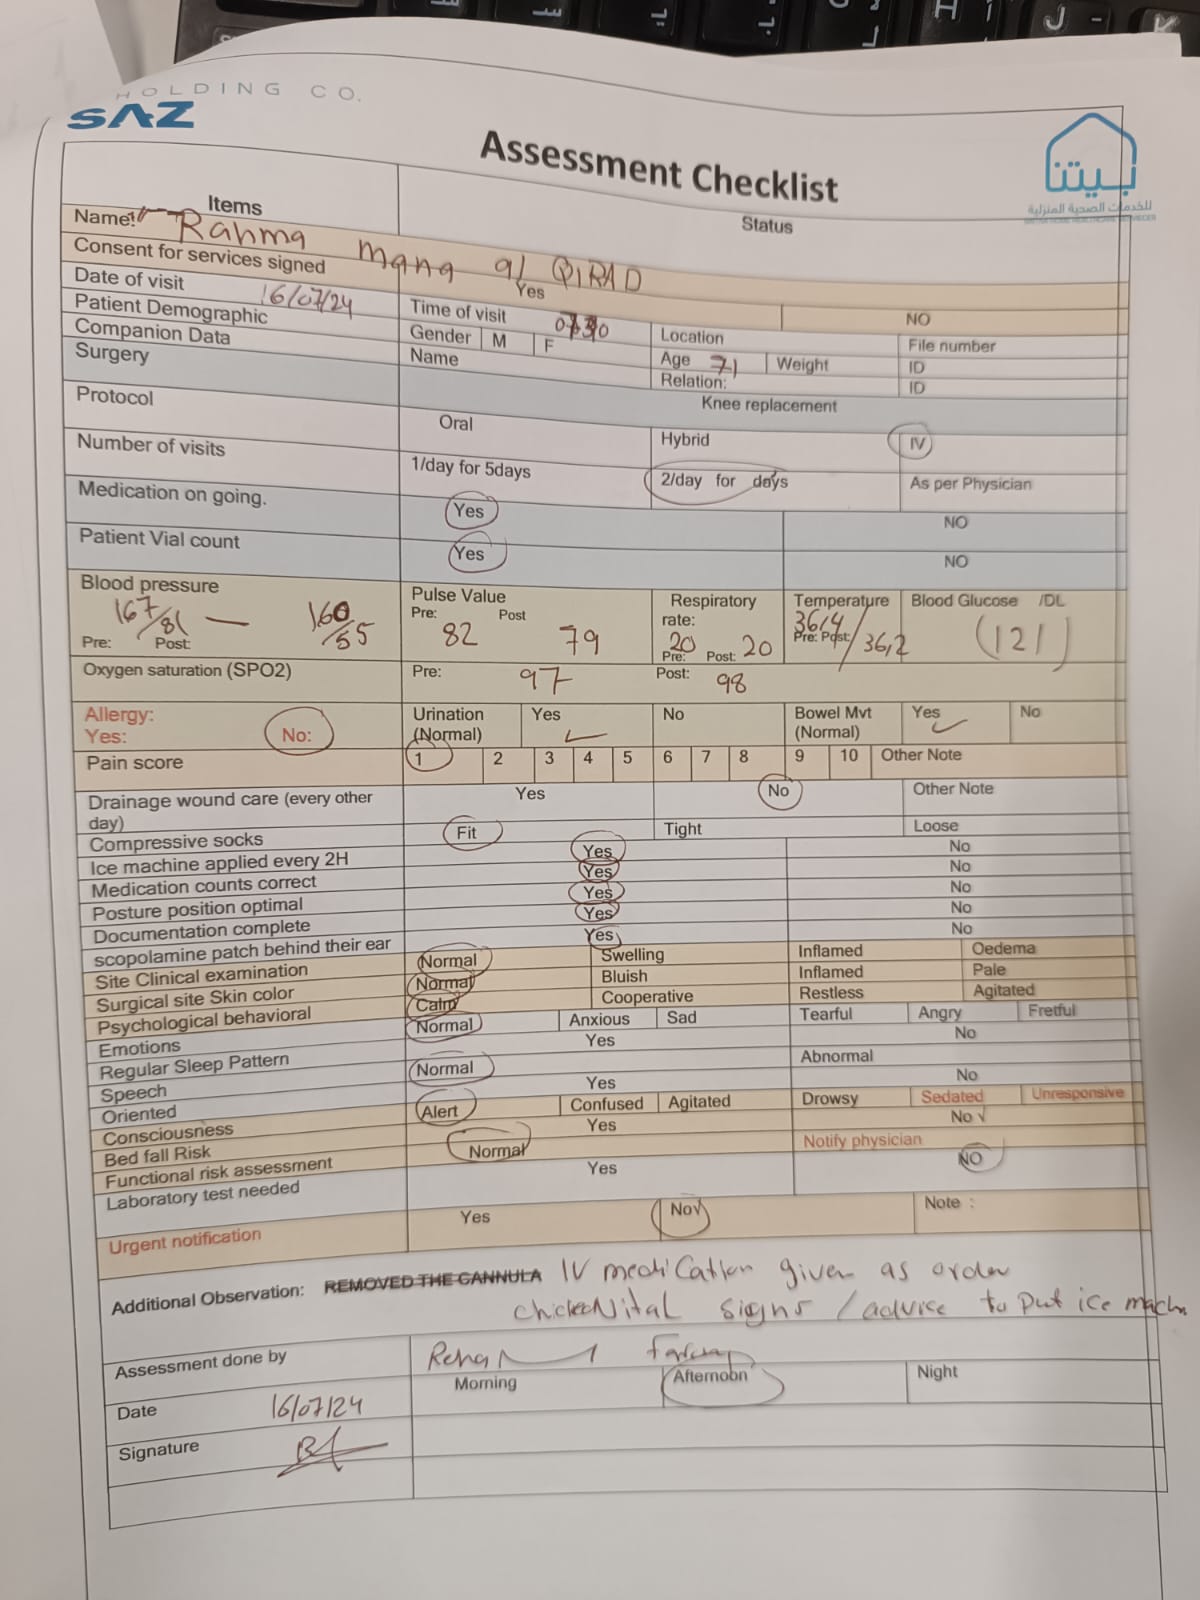 HOLDING CO.
SAZ
Assessment Checklist
بيتنا
للخدمات الصحية المنزلية
Items Status
Name: Rahma mana al QIRAD
Consent for services signed Yes NO
Date of visit 16/07/24 Time of visit Location File number
Patient Demographic Gender M F Age 71 Weight ID
Companion Data Name Relation: ID
Surgery Knee replacement
Protocol Oral Hybrid IV
Number of visits 1/day for 5days 2/day for days As per Physician
Medication on going. Yes NO
Patient Vial count Yes NO
Blood pressure Pulse Value Respiratory rate: Temperature Blood Glucose /DL
167/81 — 160/55 82 79 20 20 36,4/36,2 (121)
Pre: Post: Pre: Post Pre: Post: Pre: Post:
Oxygen saturation (SPO2) Pre: 97 Post: 98
Allergy: Urination (Normal) Yes No Bowel Mvt (Normal) Yes No
Yes: No:
Pain score 1 2 3 4 5 6 7 8 9 10 Other Note
Drainage wound care (every other day) Yes No Other Note
Compressive socks Fit Tight Loose
Ice machine applied every 2H Yes No
Medication counts correct Yes No
Posture position optimal Yes No
Documentation complete Yes No
scopolamine patch behind their ear Yes No
Site Clinical examination Normal Swelling Inflamed Oedema
Surgical site Skin color Normal Bluish Inflamed Pale
Psychological behavioral Calm Cooperative Restless Agitated
Emotions Normal Anxious Sad Tearful Angry Fretful
Regular Sleep Pattern Yes No
Speech Normal Abnormal
Oriented Yes No
Consciousness Alert Confused Agitated Drowsy Sedated Unresponsive
Bed fall Risk Yes No √
Functional risk assessment Normal Notify physician
Laboratory test needed Yes NO
Urgent notification Yes No√ Note :
Additional Observation: REMOVED THE CANNULA IV medication given as order
Vital signs / advice to put ice mach
Assessment done by
Morning Afternoon Night
Date 16/07/24
Signature